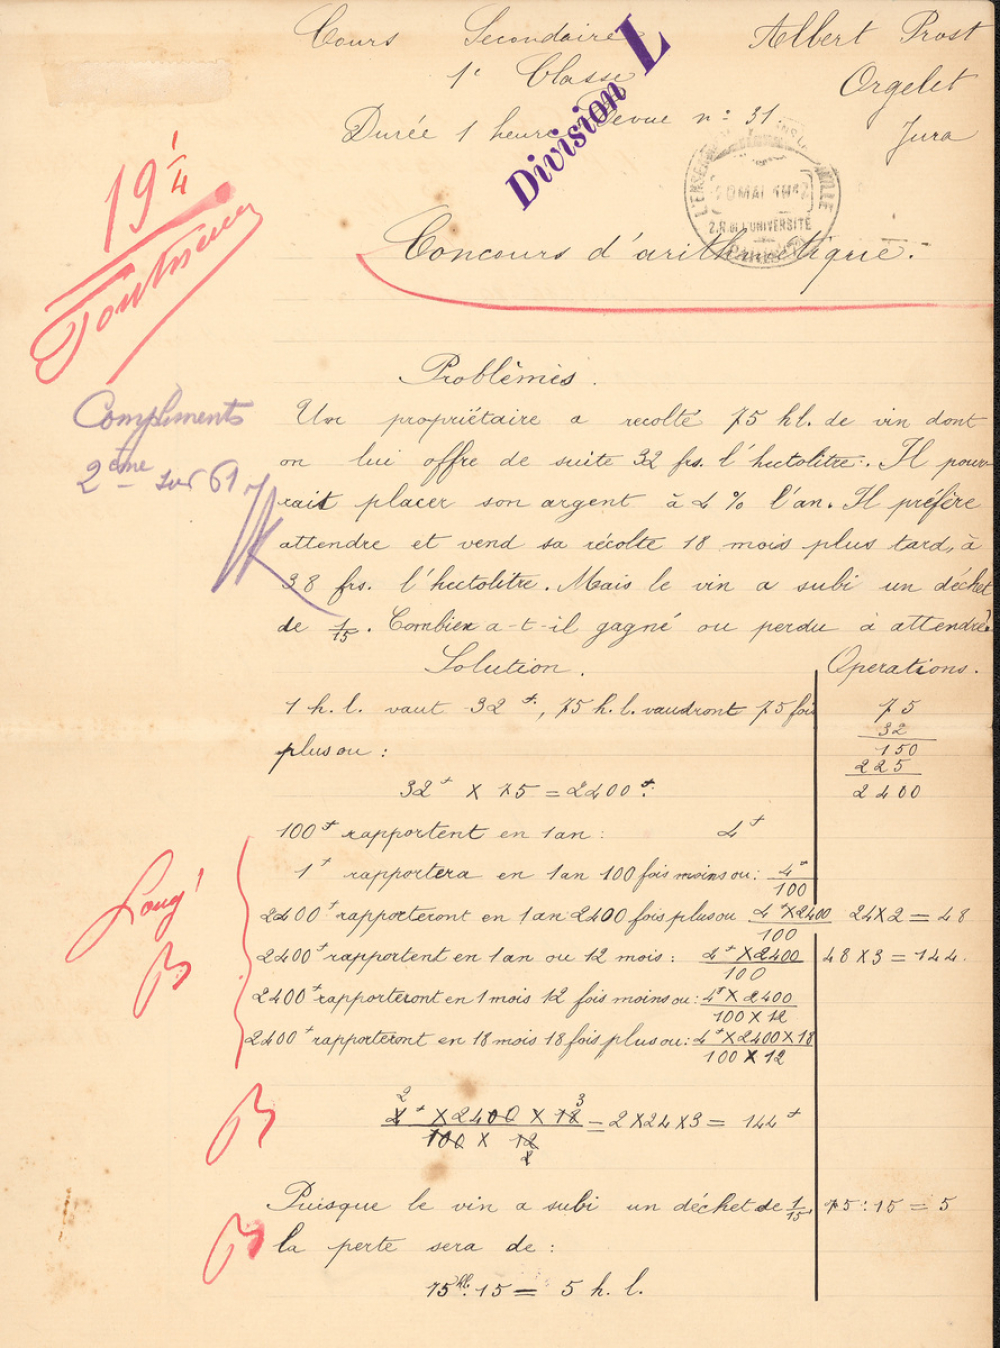 Cours Secondaire
Albert Prost
1e Classe
Orgelet
Durée 1 heure Devue n: 31.
Jura
Division L
L'ENSEI
MAI
2, R. de L'UNIVERSITÉ
PARIS
19 1/4
Concours d'arithmétique.
Compliments
2ème sur 61
Problèmes.
Un propriétaire a recolté 75 hl. de vin dont
on lui offre de suite 32 frs. l'hectolitre. Il pour-
rait placer son argent à 4 % l'an. Il préfère
attendre et vend sa récolte 18 mois plus tard, à
38 frs. l'hectolitre. Mais le vin a subi un déchet
de 1/15. Combien a-t-il gagné ou perdu à attendre?
Solution.
Operations.
1 h. l. vaut 32 f., 75 h. l. vaudront 75 fois
plus ou :
32 f × 75 = 2400 f.
75
32
150
225
2400
100 f rapportent en 1 an : 4 f
1 f rapportera en 1 an 100 fois moins ou : 4 f/100
2400 f rapporteront en 1 an 2400 fois plus ou 4 f × 2400/100
24 × 2 = 48
2400 f rapportent en 1 an ou 12 mois : 4 f × 2400/100
48 × 3 = 144.
2400 f rapporteront en 1 mois 12 fois moins ou : 4 f × 2400/100 × 12
2400 f rapporteront en 18 mois 18 fois plus ou : 4 f × 2400 × 18/100 × 12
Long!
B
2 3
4 f × 2400 × 18/100 × 12 = 2 × 24 × 3 = 144 f
2
B
Puisque le vin a subi un déchet de 1/15,
75 : 15 = 5
la perte sera de :
B
75 hl : 15 = 5 h. l.